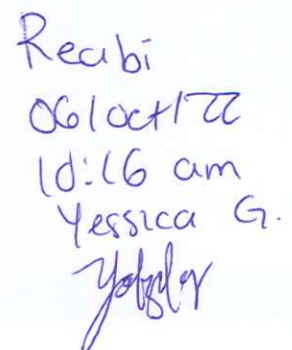 Recibi
06/oct/22
10:16 am
Yessica G.